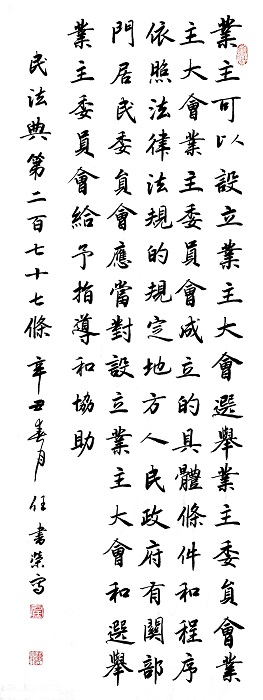 業主可以設立業主大會選舉業主委員會業
主大會業主委員會成立的具體條件和程序
依照法律法規的規定地方人民政府有関部
門居民委員會應當對設立業主大會和選舉
業主委員會給予指導和協助
民法典第二百七十七條 辛丑春月 任書榮寫